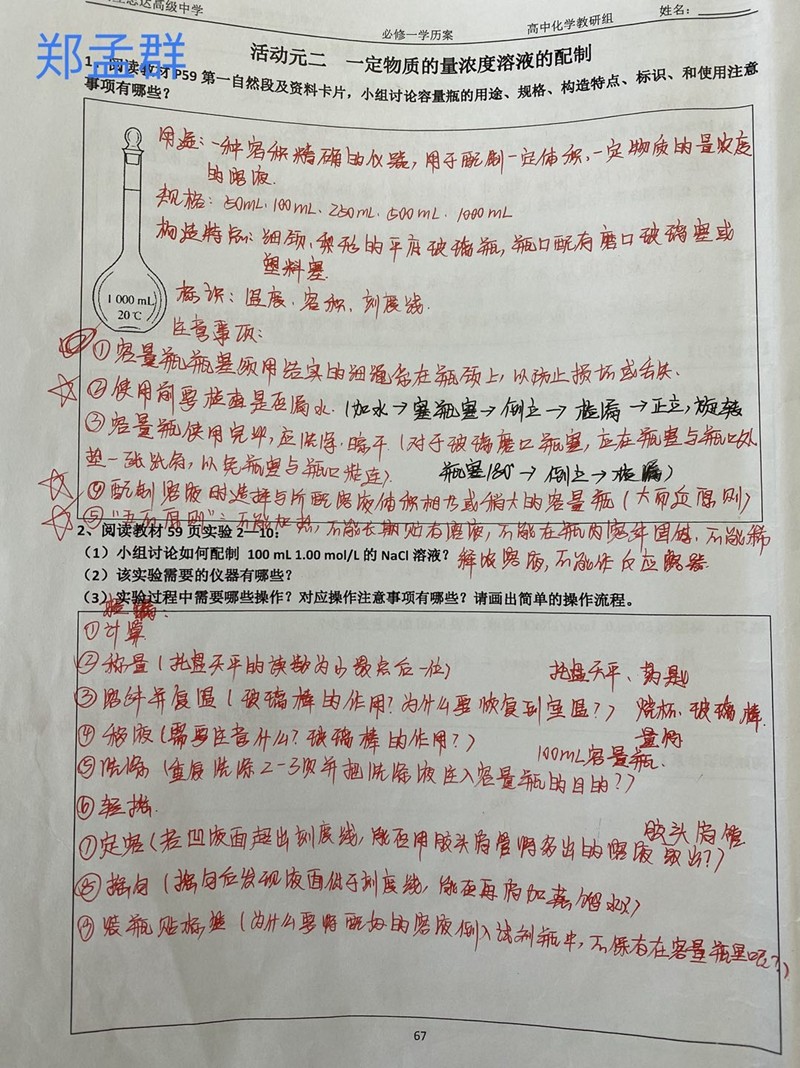 志达高级中学
必修一学历案
高中化学教研组
姓名：
郑孟群
活动元二 一定物质的量浓度溶液的配制
1、阅读教材 P59 第一自然段及资料卡片，小组讨论容量瓶的用途、规格、构造特点、标识、和使用注意
事项有哪些？
用途：一种容积精确的仪器，用于配制一定体积，一定物质的量浓度
的溶液.
规格：50mL. 100mL、250mL. 500mL. 1000mL
构造特点：细颈，梨形的平底玻璃瓶，瓶口配有磨口玻璃塞或
塑料塞.
1 000 mL
20℃
标识：温度、容积、刻度线.
注意事项：
①容量瓶瓶塞须用结实的细绳系在瓶颈上，以防止损坏或丢失.
②使用前要检查是否漏水.（加水→塞瓶塞→倒立→检漏→正立，旋转
③容量瓶使用完毕，应洗净.晾干（对于玻璃磨口瓶塞，应在瓶塞与瓶口处
垫一张纸条，以免瓶塞与瓶口粘连）.
瓶塞180°→倒立→检漏）
④配制溶液时选择与所配溶液体积相等或稍大的容量瓶（大而近原则）
⑤“五不原则”：不能加热，不能长期贮存溶液，不能在瓶内溶解固体，不能稀
2、阅读教材 59 页实验 2—10：
（1）小组讨论如何配制 100 mL 1.00 mol/L 的 NaCl 溶液？
释浓溶液，不能作反应容器.
（2）该实验需要的仪器有哪些？
（3）实验过程中需要哪些操作？对应操作注意事项有哪些？请画出简单的操作流程。
①计算
②称量（托盘天平的读数为小数点后一位）
托盘天平、药匙
③溶解并复温（玻璃棒的作用？为什么要恢复到室温？）
烧杯、玻璃棒.
量筒
④移液（需要注意什么？玻璃棒的作用？）
100mL容量瓶.
⑤洗涤（重复洗涤2-3次并把洗涤液注入容量瓶的目的？）
⑥轻摇.
胶头滴管
⑦定容（若凹液面超出刻度线，能否用胶头滴管将多出的溶液取出？）
⑧摇匀（摇匀后发现液面低于刻度线，能否再滴加蒸馏水？）
⑨装瓶贴标签（为什么要将配好的溶液倒入试剂瓶中，不保存在容量瓶里呢？）
67